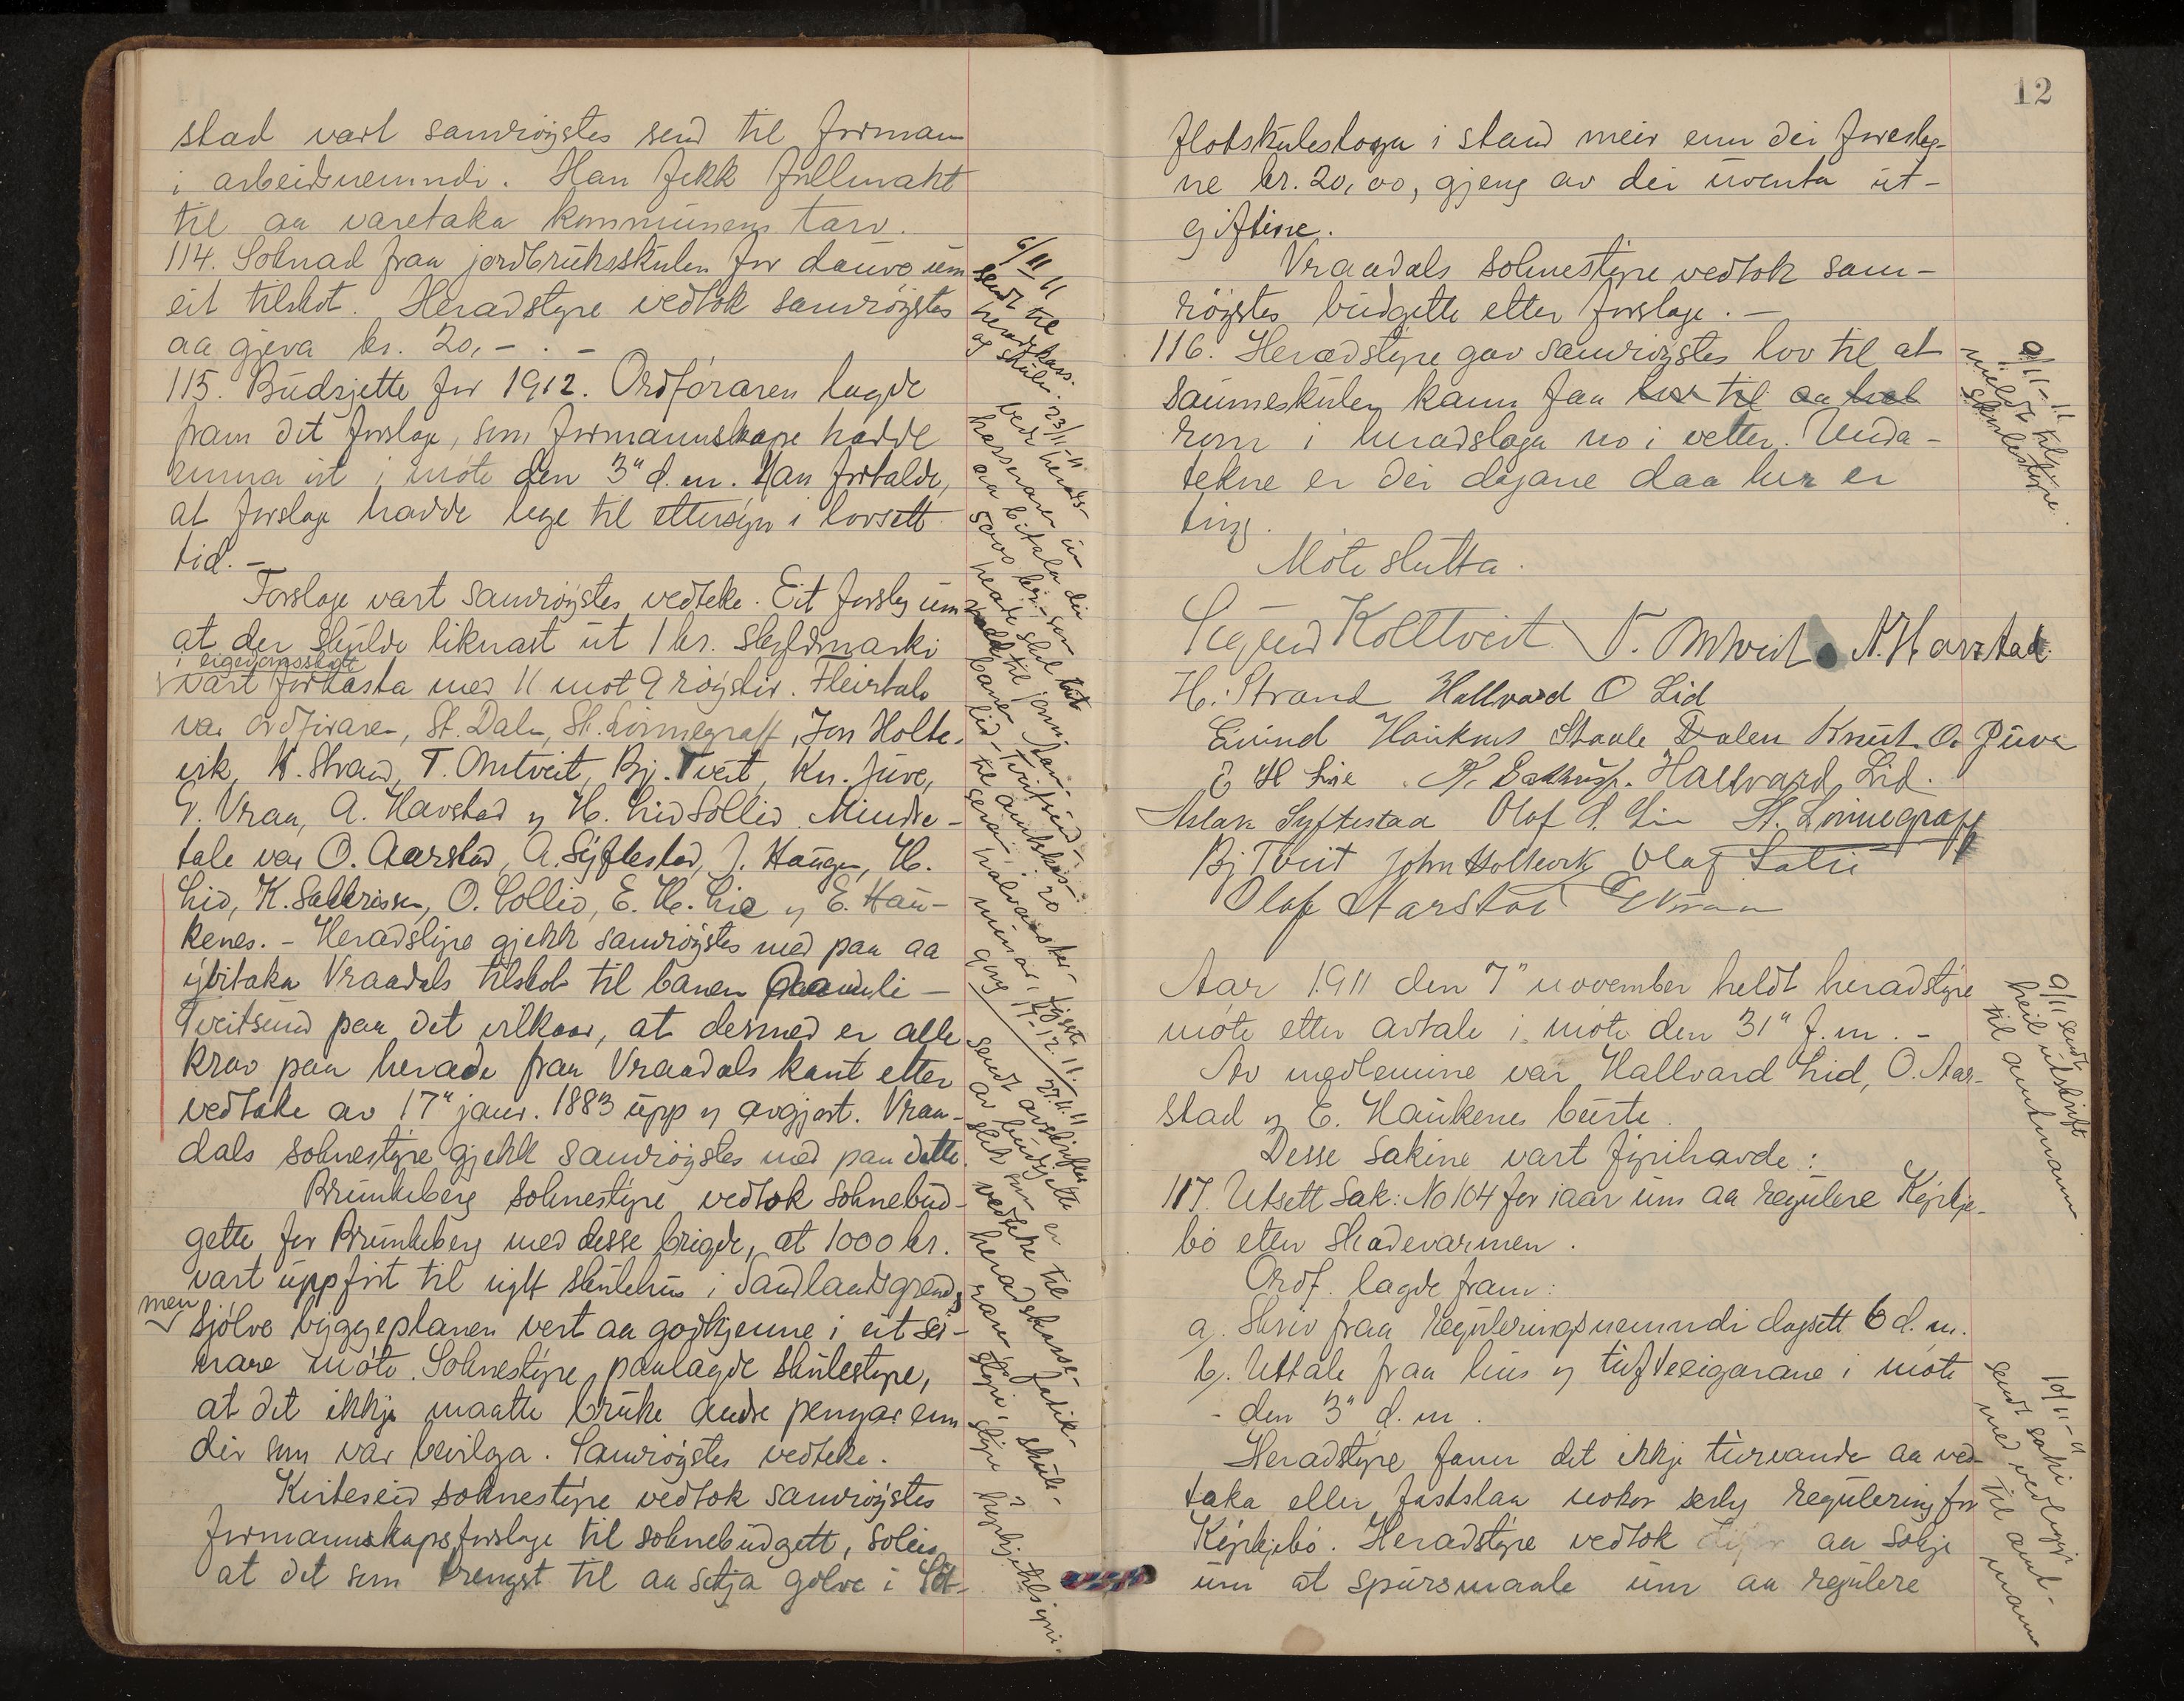 stad vart samröystes send til formann
i arbeidsnemndi. Han fekk fullmakt
til aa varetaka kommunens tarv.
114. Soknad fraa jordbruksskulen for dauve um
eit tilskot. Heradstyre vedtok samröystes
aa gjeva kr. 20,- . -
115. Budsjette for 1912. Ordföraren lagde
fram det forslage, som formannskape hadde
emna ut i möte den 3" d.m. Han fortalde,
at forslage hadde lege til ettersyn i lovsett
tid. -
Forslage vart samröystes vedteke. Eit forslag um
at der skulde liknast ut 1 kr. skyldmarki
i eigedomsskatt
vart forkasta med 11 mot 9 röyster. Fleirtale
var ordföraren, St. Dalen, St. Lönnegraff, Jon Holte-
vik, H. Strand, T. Omtveit, Bj. Tveit, Kn. Juve,
G. Vraa, A. Havstad og H. Lid Sollid. Mindre-
tale var O. Aarstad, A. Syftestad, J. Haugen, H.
Lid, K. Sallrissen, O. Sollid, E. H. Lie og E. Hau-
kenes. - Heradstyre gjekk samröystes med paa aa
yvitaka Vraadals tilskot til banen Aamli -
Tveitsund paa det vilkaar, at dermed er alle
krav paa herade fraa Vraadals kant etter
vedtake av 17" janr. 1883 upp og avgjort. Vraa-
dals soknestyre gjekk samröystes med paa dette.
Brunkeberg soknestyre vedtok soknebud-
gette for Brunkeberg med desse brigde, at 1000 kr.
vart uppfört til nytt skulehus i Sandlandsgrend,
men
sjölve byggeplanen vert aa godkjenne i eit sei-
nare möte. Soknestyre paalagde skulestyre,
at det ikkje maatte bruke andre pengar enn
dei som var bevilga. Samröystes vedteke.
Kviteseid soknestyre vedtok samröystes
formannskapsforslage til soknebudgett, soleis
at det som trengst til aa setja golve i Slöt-
6/11 11
sendt til
heradskass.
og skulen.
23/11-11
bedt herads-
kasseraren um
aa bitala dei
5000 kr. - som
herade skal
til jernbanen Aamli - Tveitsund -
til amtskas-
17-12. 11.
27.11.11
sendt avskrifter
av budgette
slik som er
vedteke til
heradskasse-
raren, fatik-
styre, skule-
styre og kyrkjetilsyni.
12
flotskulestoga i stand meir enn dei foresleg-
ne kr. 20,00, gjeng av dei uventa ut-
giftine.
Vraadals soknestyre vedtok sam-
röystes budgette etter forslage. -
116. Heradstyre gav samröystes lov til at
saumeskulen kann faa lov til aa hal
rom i heradsloga no i vetter. Unda-
tekne er dei dagane daa her er
ting.
9/11-11
meldt til
skulestyre.
Möte slutta.
Sigurd Kolltveit T. Omtveit N. Havstad.
H. Strand Hallvard O Lid
Eivind Hauknes Staale Dalen Knut O. Juve
E H Lie . K. Sallrissen Hallvard Lid.
Aslak Syftestad Olaf S. Lie St. Lönnegraff
Bj Tveit John Holtevik Olaf Solli
Olaf Aarstad G Vraa
Aar 1911 den 7" november heldt heradstyre
möte etter avtale i möte den 31" f.m. -
Av medlemine var Hallvard Lid, O. Aar-
stad og E. Haukenes burte.
Desse sakine vart fyrihavde:
117. Utsett sak: No 104 for iaar um aa regulere Kyrkje-
bö etter skadevarmen.
Ordf. lagde fram:
a). Skriv fraa reguleringsnemndi dagsett 6 d.m.
b). Uttale fraa hus og tufteeigarane i möte
- den 3" d.m.
Heradstyre fann det ikkje turvande aa ved-
taka eller fastslaa nokor serleg regulering for
Kyrkjebö. Heradstyre vedtok aa sökje
um at spursmaale um aa regulere
9/11 sendt
heil utskrift
til amtmann
10/11-11
sendt saki
med vedlegg
til amt-
mann